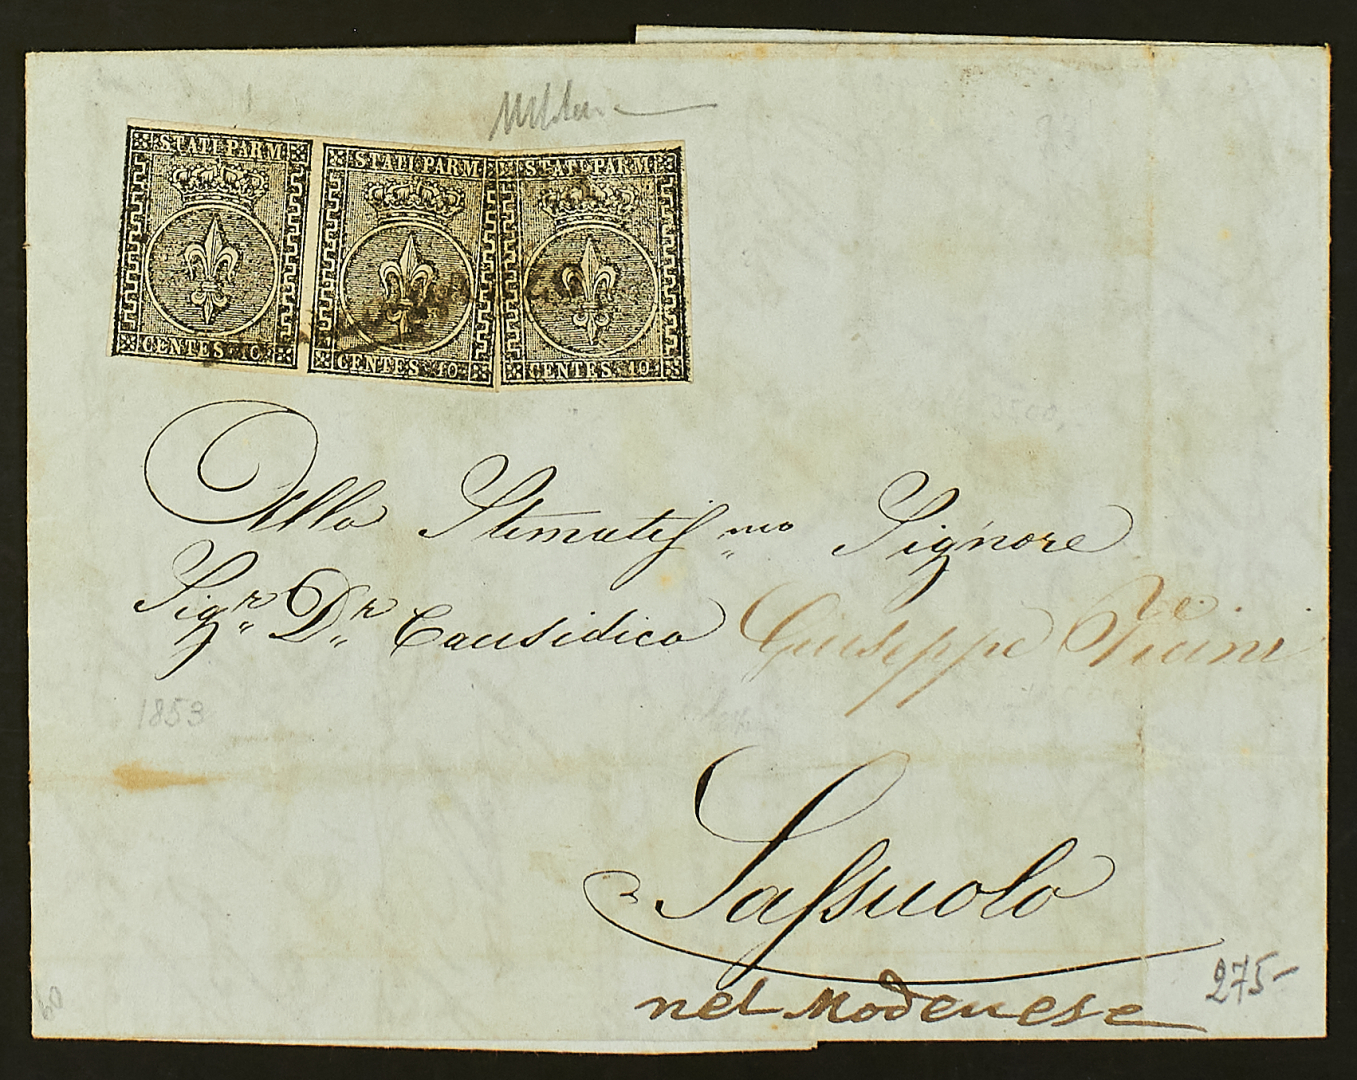 STATI PARM
STATI PARM
STATI PARM
CENTES 10
CENTES 10
CENTES 10
Allo Stimatiss.mo Signore
Sigr. Dr. Causidico Giuseppe Vicini
1853
Sassuolo
nel Modenese
275-
60